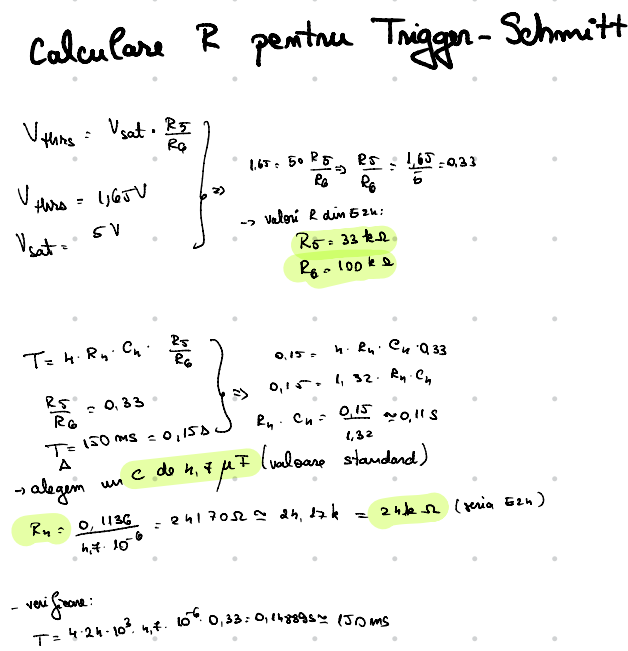 Calculare R pentru Trigger-Schmitt
Vthrs = Vsat · R5/R6
Vthrs = 1,65V
Vsat = 5V
=>
1,65 = 5 · R5/R6 => R5/R6 = 1,65/5 = 0,33
-> valori R din E24:
R5 = 33 kΩ
R6 = 100 kΩ
T = 4 · R4 · C4 · R5/R6
R5/R6 = 0,33
T = 150 ms = 0,15 s
Δ
=>
0,15 = 4 · R4 · C4 · 0,33
0,15 = 1,32 · R4 · C4
R4 · C4 = 0,15/1,32 ≃ 0,11 s
-> alegem un C de 4,7 μF (valoare standard)
R4 = 0,1136/4,7 · 10^-6 = 24170Ω ≃ 24,17k = 24k Ω (seria E24)
- verificare:
T = 4 · 24 · 10^3 · 4,7 · 10^-6 · 0,33 = 0,14889s ≃ 150 ms